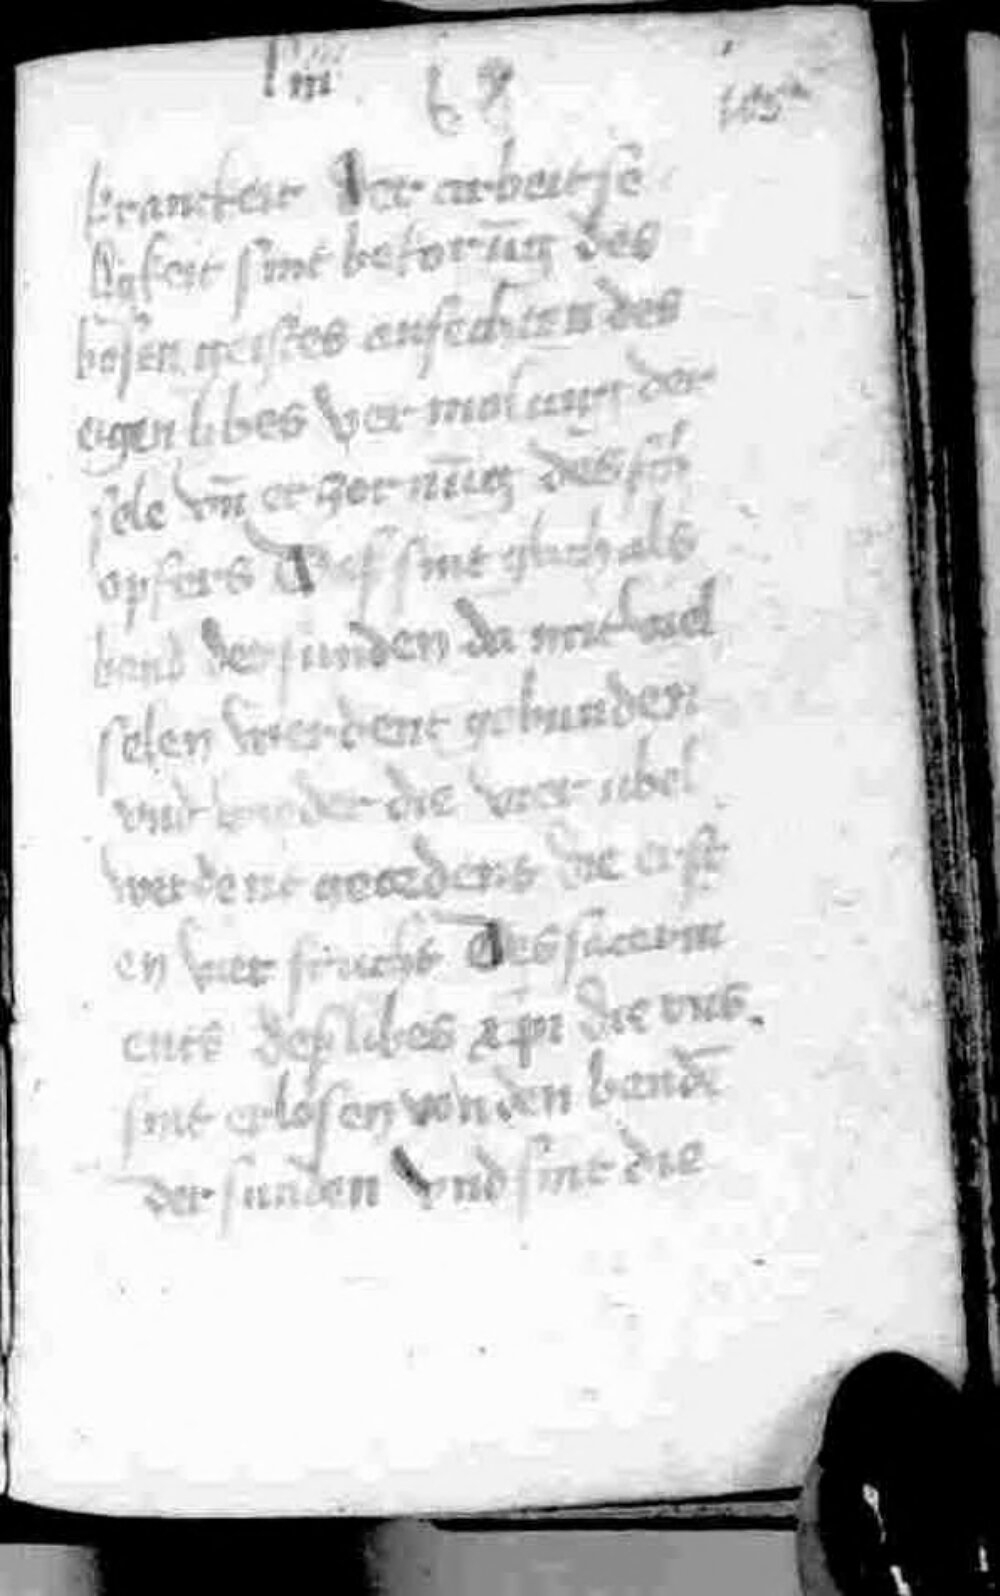 kranckeit Der arbeit se
likeit sint bekorūg des
bosen geistes anfechten des
eigen libes Ver molung der
sele vn̄ erzornūg des
opfers Das sint glich als
band der sunden da mit viel
selen werdent gebunden
vnd wider die vier ubel
werdent geordent die erst
en vier frucht Des sacram
ents des libes xp̄i die vns
sint erlosen von den band̄
der sunden Vnd sint die